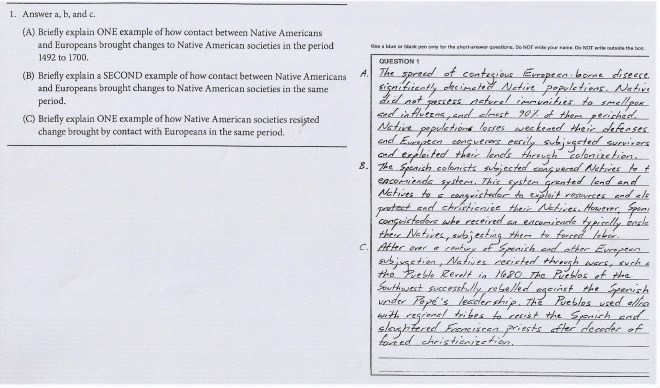 1. Answer a, b, and c.
(A) Briefly explain ONE example of how contact between Native Americans
and Europeans brought changes to Native American societies in the period
1492 to 1700.
(B) Briefly explain a SECOND example of how contact between Native Americans
and Europeans brought changes to Native American societies in the same
period.
(C) Briefly explain ONE example of how Native American societies resisted
change brought by contact with Europeans in the same period.
Use a blue or black pen only for the short-answer questions. Do NOT write your name. Do NOT write outside the box.
QUESTION 1
A. The spread of contagious European-borne disease
significantly decimated Native populations. Native
did not possess natural immunities to smallpox
and influenza, and almost 90% of them perished.
Native populations losses weakened their defenses
and European conquerors easily subjugated survivors
and exploited their lands through colonization.
B. The Spanish colonists subjected conquered Natives to t
encomienda system. This system granted land and
Natives to a conquistador to exploit resources and als
protect and christianize their Natives. However, Spani
conquistadors who received an encomienda typically ensla
their Natives, subjecting them to forced labor.
C. After over a century of Spanish and other European
subjugation, Natives resisted through wars, such a
the Pueblo Revolt in 1680. The Pueblos of the
Southwest successfully rebelled against the Spanish
under Popé's leadership. The Pueblos used allia
with regional tribes to resist the Spanish and
slaughtered Franciscan priests after decades of
forced christianization.